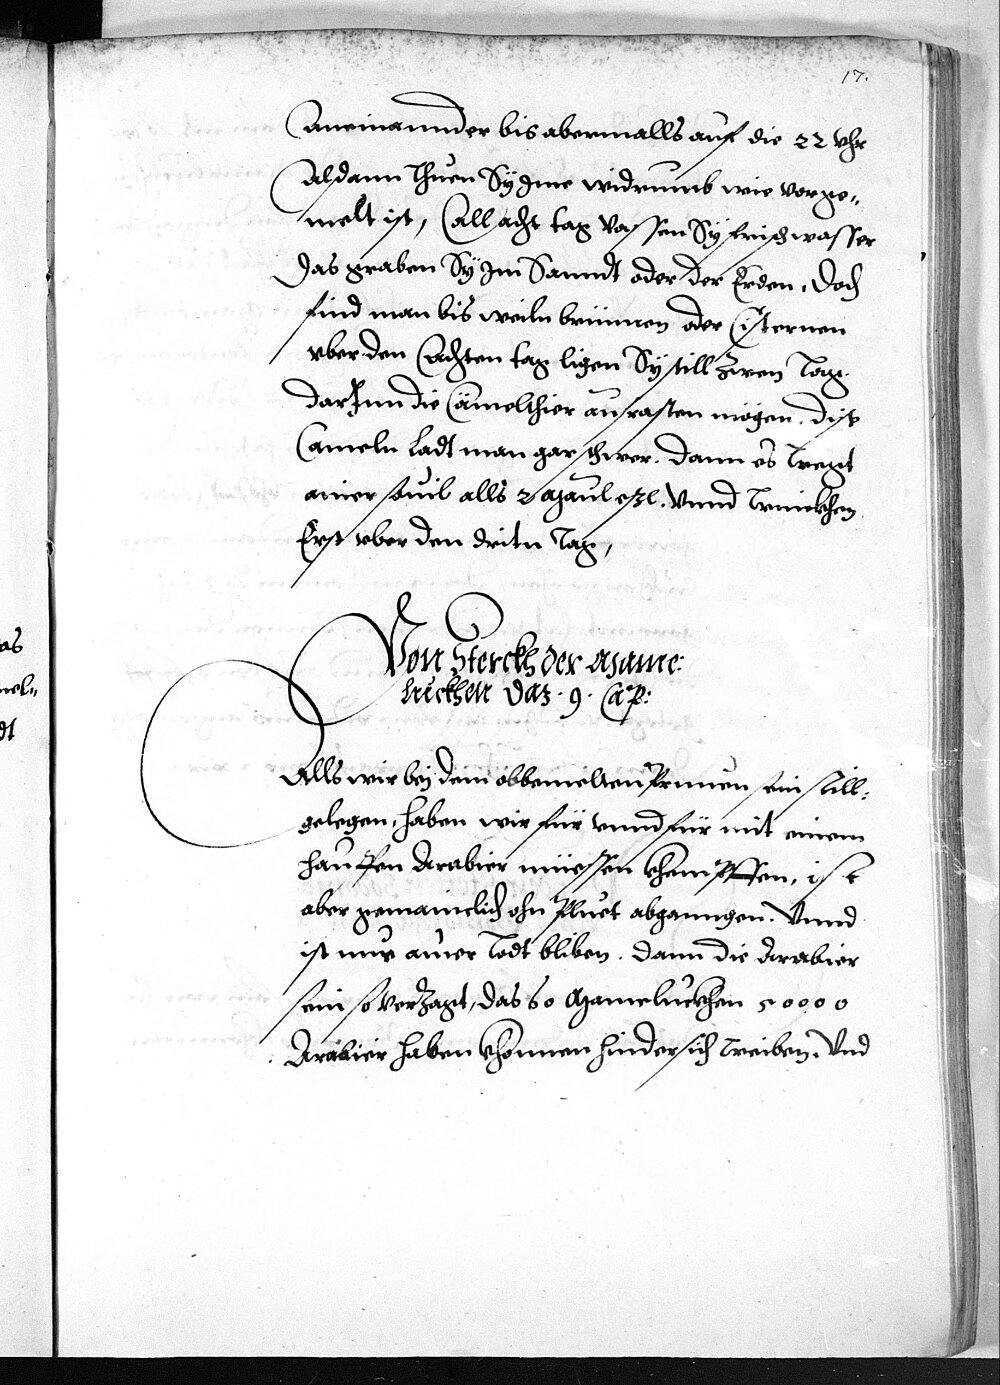 17.
Aneinannder bis abermalls auf die 22 Vhr
Aldann Thuen Sÿ Jme widrumb wie vorge„
melt ist, All acht tag Vassen Sÿ frisch wasser
Das graben Sÿ Jm Sanndt oder der Erden, Doch
find man bis weiln brünnen oder Cisternen
vber den Achten tag ligen Sÿ still Zwen Tag
darJnn die Cämelthier an rasten mögen. Dise
Cameln Ladt man gar schwer. Dann es Tregt
ainer souil alls 2 Maul esl. Vnnd Trinckhen
Erst vber den dritn Tag,
Von Sterckh der Mame:
luckhen Das · 9 · Cap:
Alls wir beÿ dem obbemelten Prunen sein still:
gelegen, haben wir für vnnd für mit einem
hauffen Arabier müessen khempffen, ist
aber gemainclich ohn Pluet abganngen. Vnnd
ist nur ainer Todt bliben. Dann die Arabier
sein so verzagt, das 60 Mameluckhen 50000
Arabier haben khönnen hindersich Treiben. Vnd
as
mel„
dt